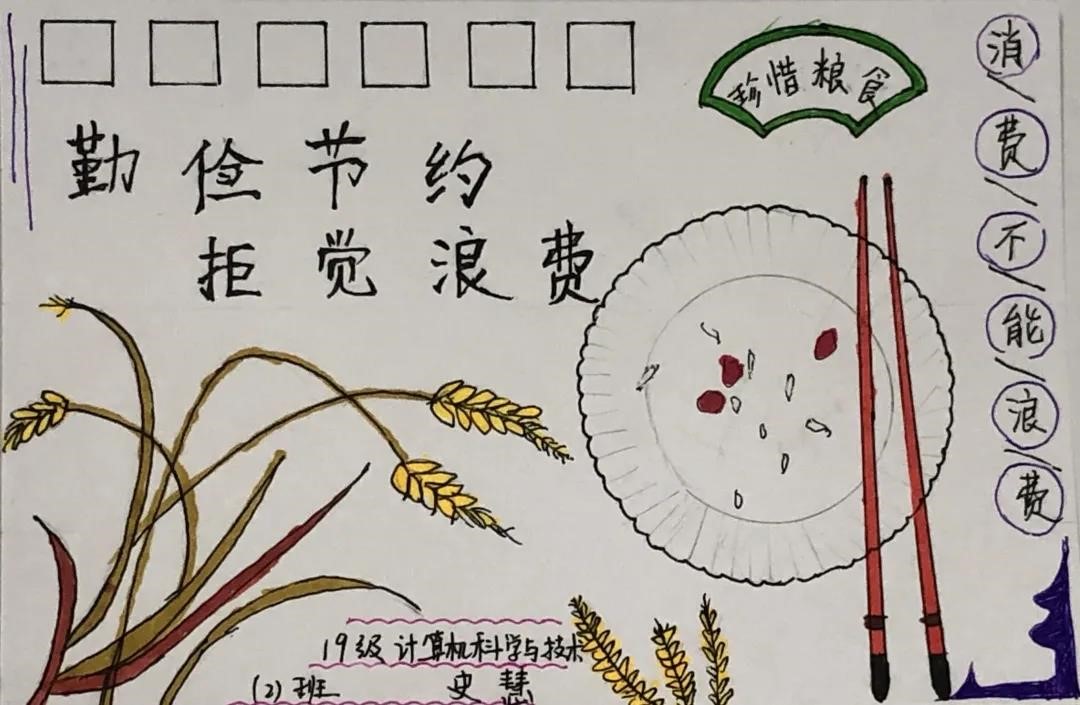 珍惜粮食
勤俭节约
拒觉浪费
消/费/不/能/浪/费
19级计算机科学与技术
(2)班 史慧